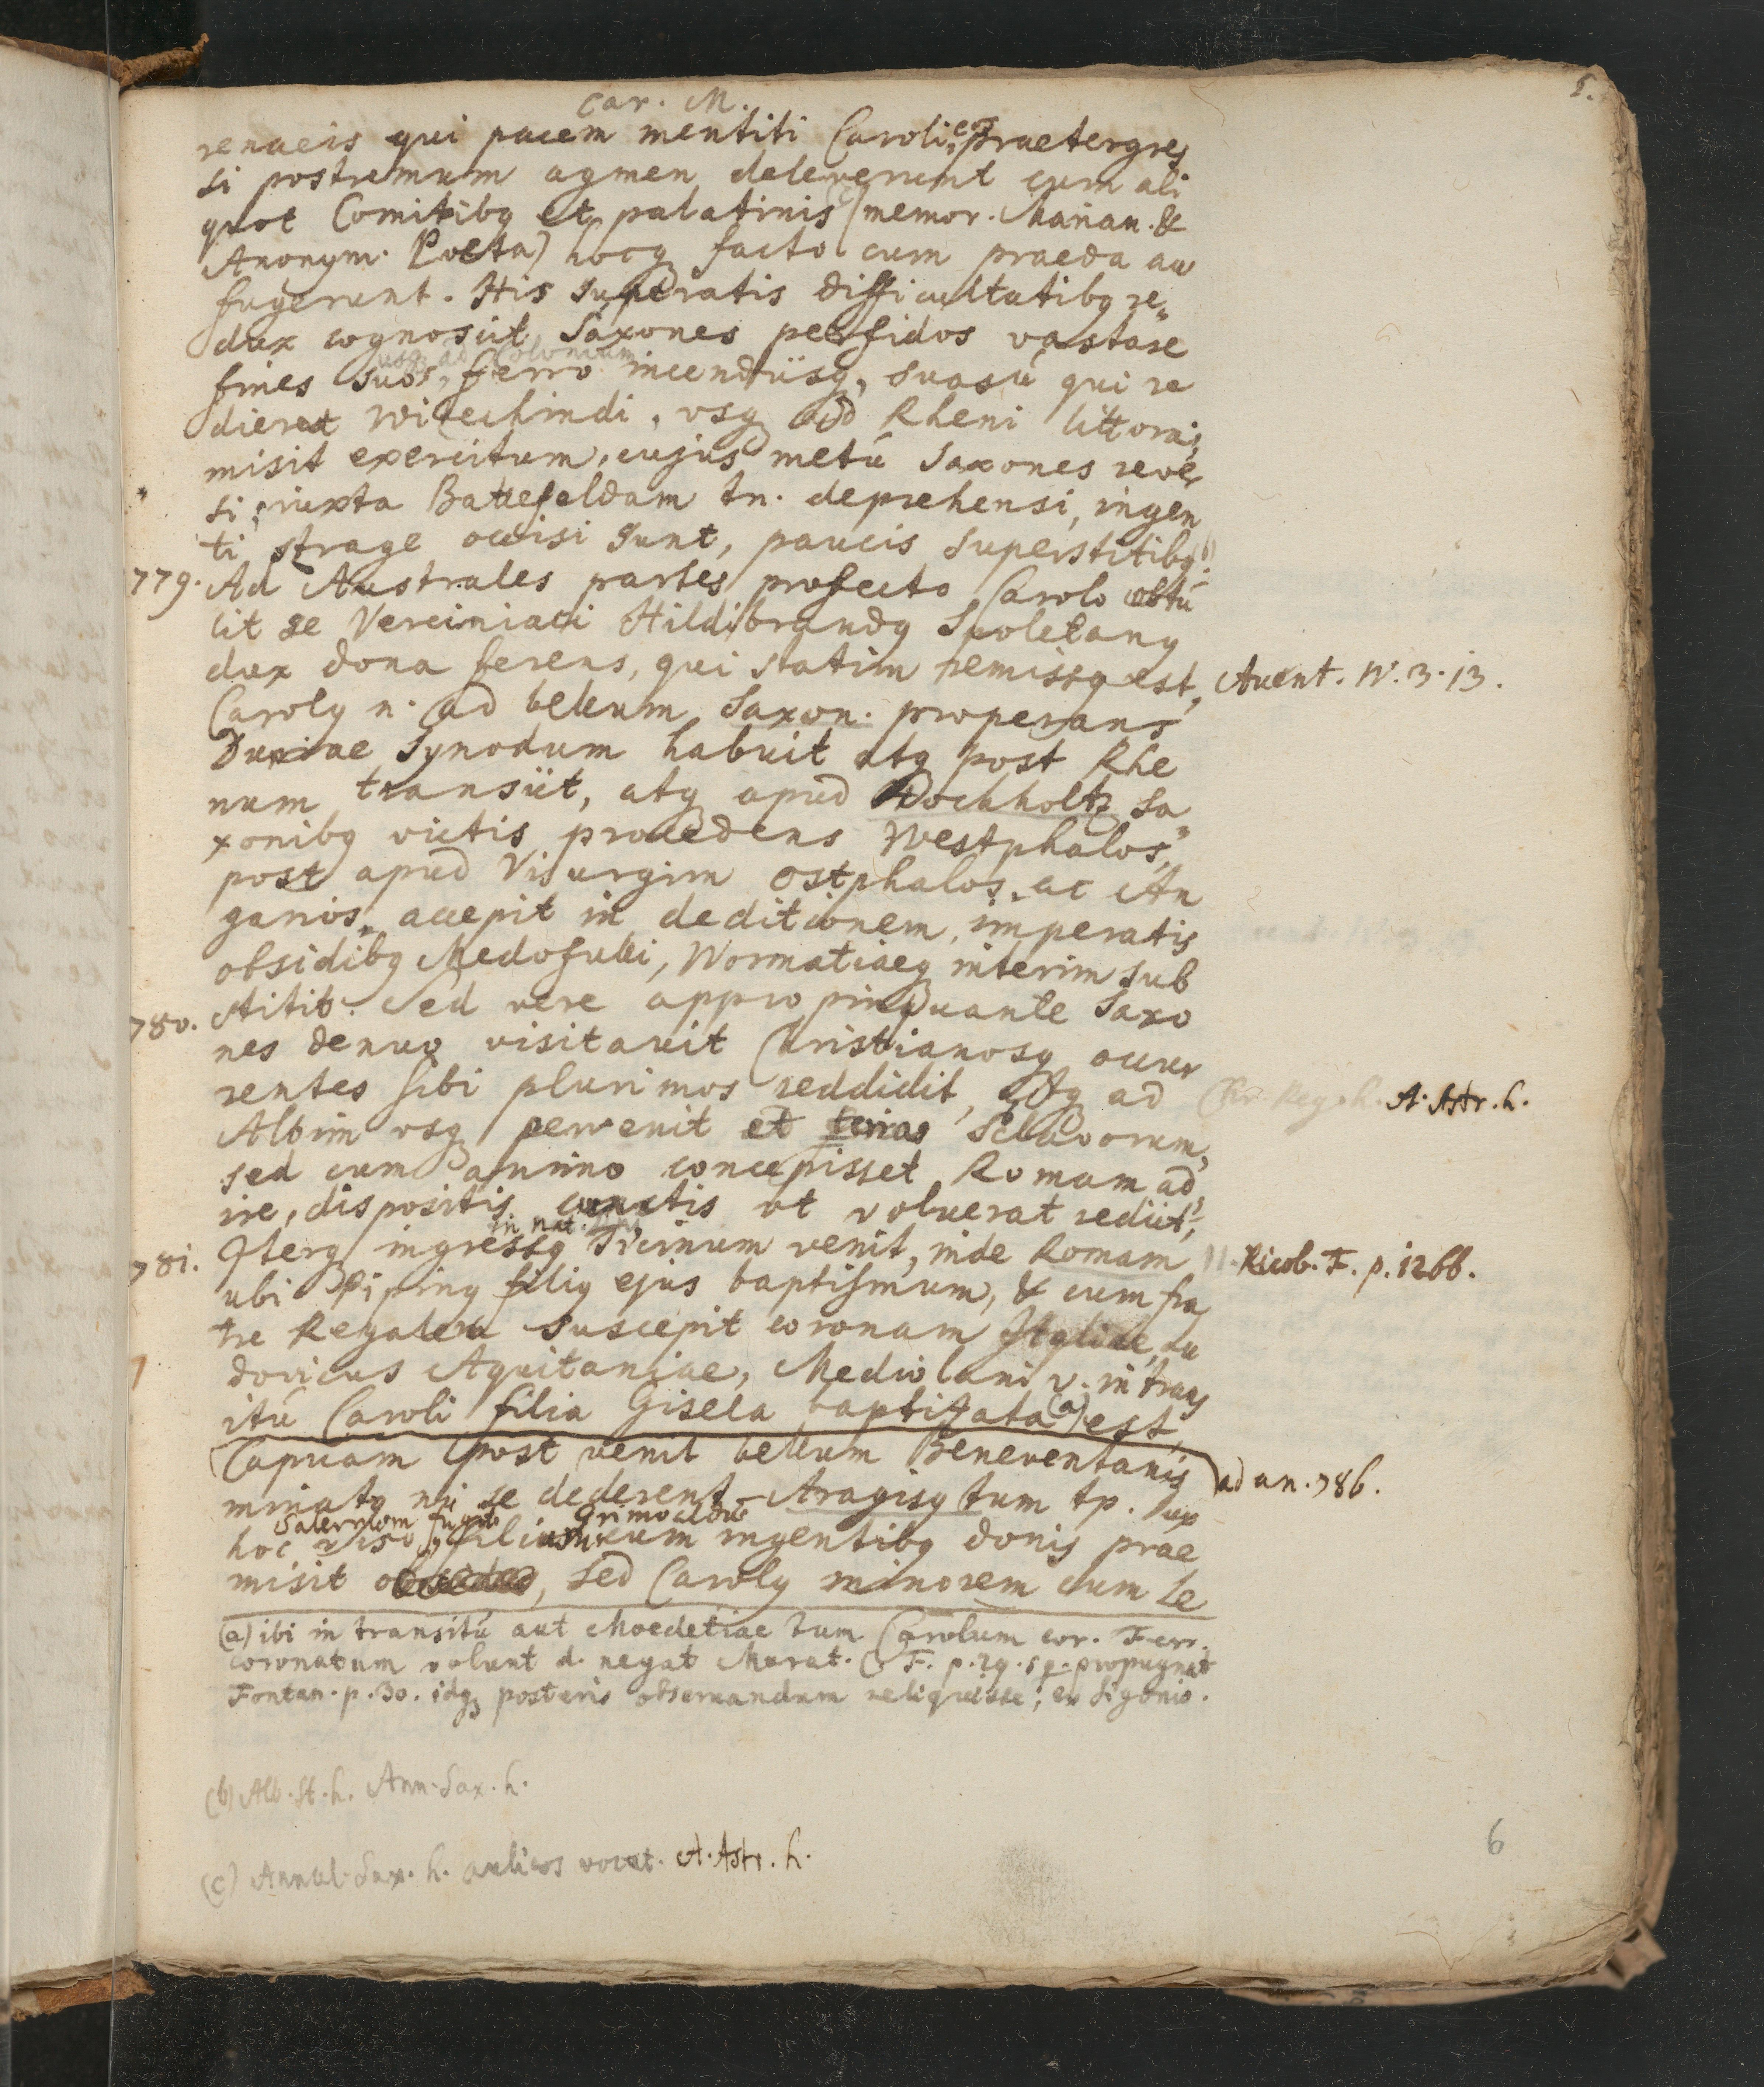 5.
Car. M.
renaeis qui pacem mentiti Caroli praetergres
si postremum agmen deleverunt cum ali
quot Comitibq et palatinis (memor. Marian. &
Anonym. Poeta) hocq facto cum praeda au
fugerunt. His superatis difficultatibq re„
dux cognoscit Saxones perfidos vastare
usq ad Coloniam
fines suos, ferro incendiisq, suasu qui re
dierat Witechindi, vsq ad Rheni littora;
misit exercitum, cujus metû Saxones rever
si, iuxta Battefeldam tn. deprehensi, ingen
ti strage occisi sunt, paucis superstitibq. (b)
779. Ad Australes partes profecto Carolo obtû
lit se Verciniaci Hildibrandq Spoletanq
dux dona ferens, qui statim remissq est, Auent. IV. 3. 13.
Carolq n. ad bellum Saxon. properans
Duriae Synodum habuit atq post Rhe
num transiit, atq apud Bochholtz Sa„
xonibq victis procedens Westphalos,
post apud Visurgim Ostphalos, ac An
garios, accepit in deditionem, imperatis
obsidibq Medofulli, Wormatiaeq interim sub
780. stitit. Sed vere appropinquante Saxo
nes denuo visitauit Christianosq occur
rentes sibi plurimos reddidit, atq ad Chr. Reg. h. A. Astr. h.
Albim vsq pervenit et terras Sclavorum,
sed cum animo concepisset Romam ad
ire, dispositis cunctis vt voluerat rediit;
in nat.
781. Iterq ingressq Ticinum venit, inde Romam Ricob. F. p. 1266.
ubi Pipinq filiq ejus baptismum, & cum fra
tre Regalem suscepit coronam Italiae, Lu
dovicus Aquitaniae, Mediolani v. in trans
itû Caroli filia Gisela baptizata (a) est,
Capuam post venit bellum Beneventanis ad an. 786.
minatq ni se dederent. Aragisq tum tp. Dux
Salernum fugit Grimoaldum
hoc viso, filium cum ingentibq donis prae
misit, sed Carolq minorem cum Le
(a) ibi in transitû aut Moedetiae tum Carolum cor. Ferr.
coronatum volunt d. negat Murat. C. F. p. 29. sq. propugnat
Fontan. p. 30. idq posteris obseruandum reliquisse; ex Sigonio.
(b) Alb. St. h. Ann. Sax. h.
(c) Annal. Sax. h. aulicos vocat. A. Astr. h.
6